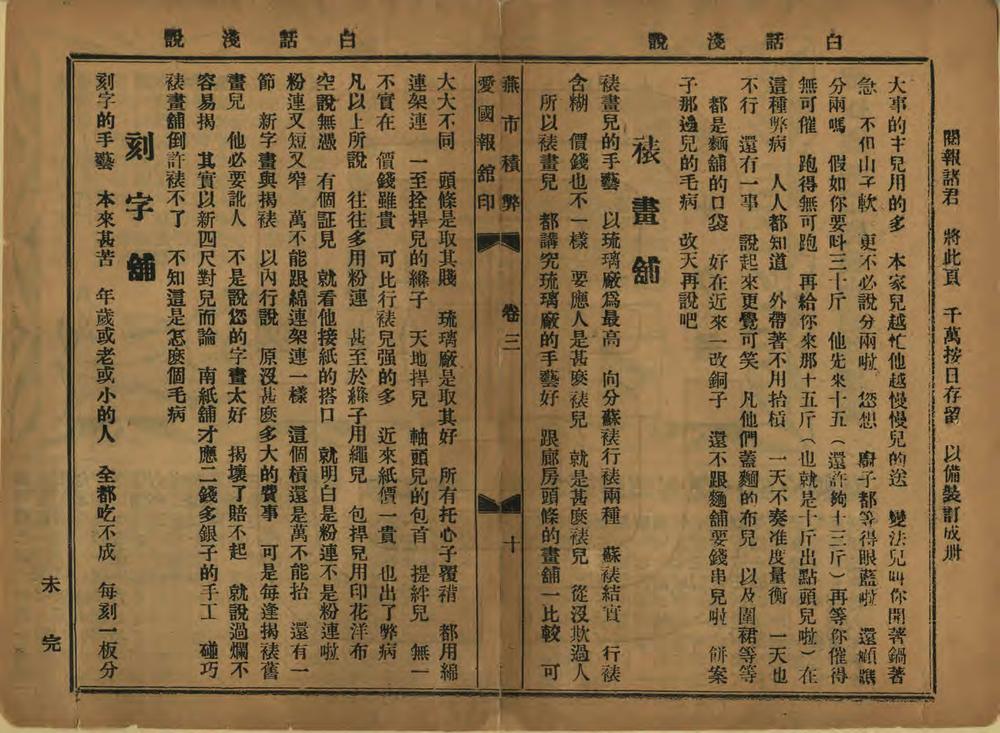 白話淺說
閱報諸君　將此頁　千萬按日存留　以備裝訂成册
大事的主兒用的多　本家兒越忙他越慢慢兒的送　變法兒叫你開著鍋著
急　不但山子軟　更不必說分兩啦　您想　廚子都等得眼藍啦　還顧瞧
分兩嗎　假如你要呌三十斤　他先來十五（還許夠十三斤）再等你催得
無可催　跑得無可跑　再給你來那十五斤（也就是十斤出點頭兒啦）在
這種弊病　人人都知道　外帶著不用抬槓　一天不奏准度量衡　一天也
不行　還有一事　說起來更覺可笑　凡他們蓋麵的布兒　以及圍裙等等
都是麵舖的口袋　好在近來一改銅子　還不跟麵舖要錢串兒啦　餅案
子那邊兒的毛病　改天再說吧
裱畫舖
裱畫兒的手藝　以琉璃廠爲最高　向分蘇裱行裱兩種　蘇裱結實　行裱
含糊　價錢也不一樣　要應人是甚麽裱兒　就是甚麽裱兒　從沒欺過人
所以裱畫兒　都講究琉璃廠的手藝好　跟廊房頭條的畫舖一比較　可
燕市積弊　卷三　十
愛國報館印
白話淺說
大大不同　頭條是取其賤　琉璃廠是取其好　所有托心子覆褙　都用綿
連架連　一至拴捍兒的縧子　天地捍兒　軸頭兒的包首　提絆兒　無一
不實在　價錢雖貴　可比行裱兒强的多　近來紙價一貴　也出了弊病
凡以上所說　往往多用粉連　甚至於縧子用繩兒　包捍兒用印花洋布
空說無憑　有個証見　就看他接紙的搭口　就明白是粉連不是粉連啦
粉連又短又窄　萬不能跟綿連架連一樣　這個槓還是萬不能抬　還有一
節　新字畫與揭裱　以內行說　原沒甚麽多大的費事　可是每逢揭裱舊
畫兒　他必要訛人　不是說您的字畫太好　揭壞了賠不起　就說過爛不
容易揭　其實以新四尺對兒而論　南紙舖才應二錢多銀子的手工　碰巧
裱畫舖倒許裱不了　不知這是怎麽個毛病
刻字舖
刻字的手藝　本來甚苦　年歲或老或小的人　全都吃不成　每刻一板分
未完